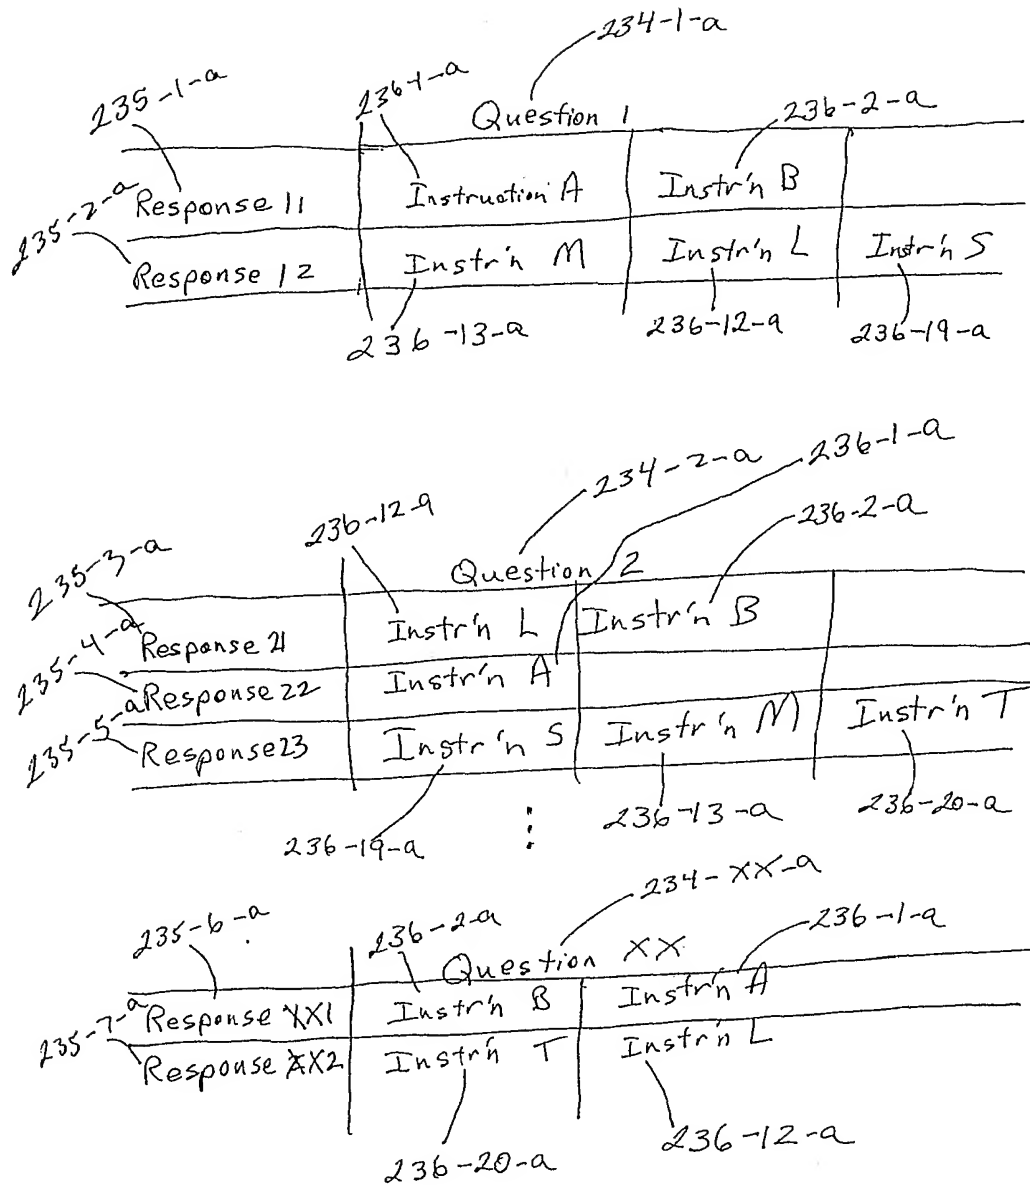 234-1-a
235-1-a 236-1-a 236-2-a
Question 1
Response 11 Instruction A Instr'n B
235-2-a
Response 12 Instr'n M Instr'n L Instr'n S
236-13-a 236-12-a 236-19-a
234-2-a 236-1-a
236-12-a 236-2-a
235-3-a
Question 2
Response 21 Instr'n L Instr'n B
235-4-a
Response 22 Instr'n A
235-5-a
Response 23 Instr'n S Instr'n M Instr'n T
236-19-a 236-13-a 236-20-a
234-XX-a
235-6-a 236-2-a 236-1-a
Question XX
Response XX1 Instr'n B Instr'n A
235-7-a
Response XX2 Instr'n T Instr'n L
236-20-a 236-12-a